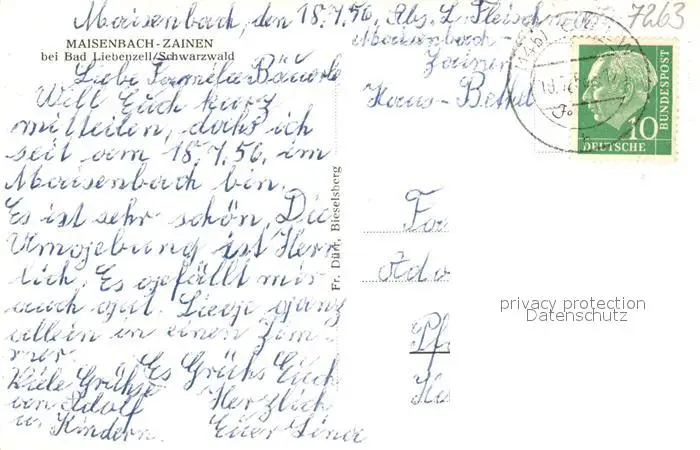 Maisenbach, den 18.7.56, Abs. L. Fleischmann
7263
Maisenbach-
Zainen
Haus-Bethel
MAISENBACH-ZAINEN
bei Bad Liebenzell/Schwarzwald
Liebe Familie Bäuerle
Will Euch kurz
mitteilen, dahs ich
seit vom 18.7.56, im
Maisenbach bin.
Es ist sehr schön. Die
Umgebung ist Herr
lich. Es gefällt mir
auch gut. Liege ganz
allein in einen Zim-
mer.
Es Grühs Euch
Viele Grühse
von Adolf Herzlich
u. Kindern. Euer Lina
Fr. Dürr, Bieselsberg
10
DEUTSCHE
BUNDESPOST
Fa
Ado
Pf
privacy protection
Datenschutz